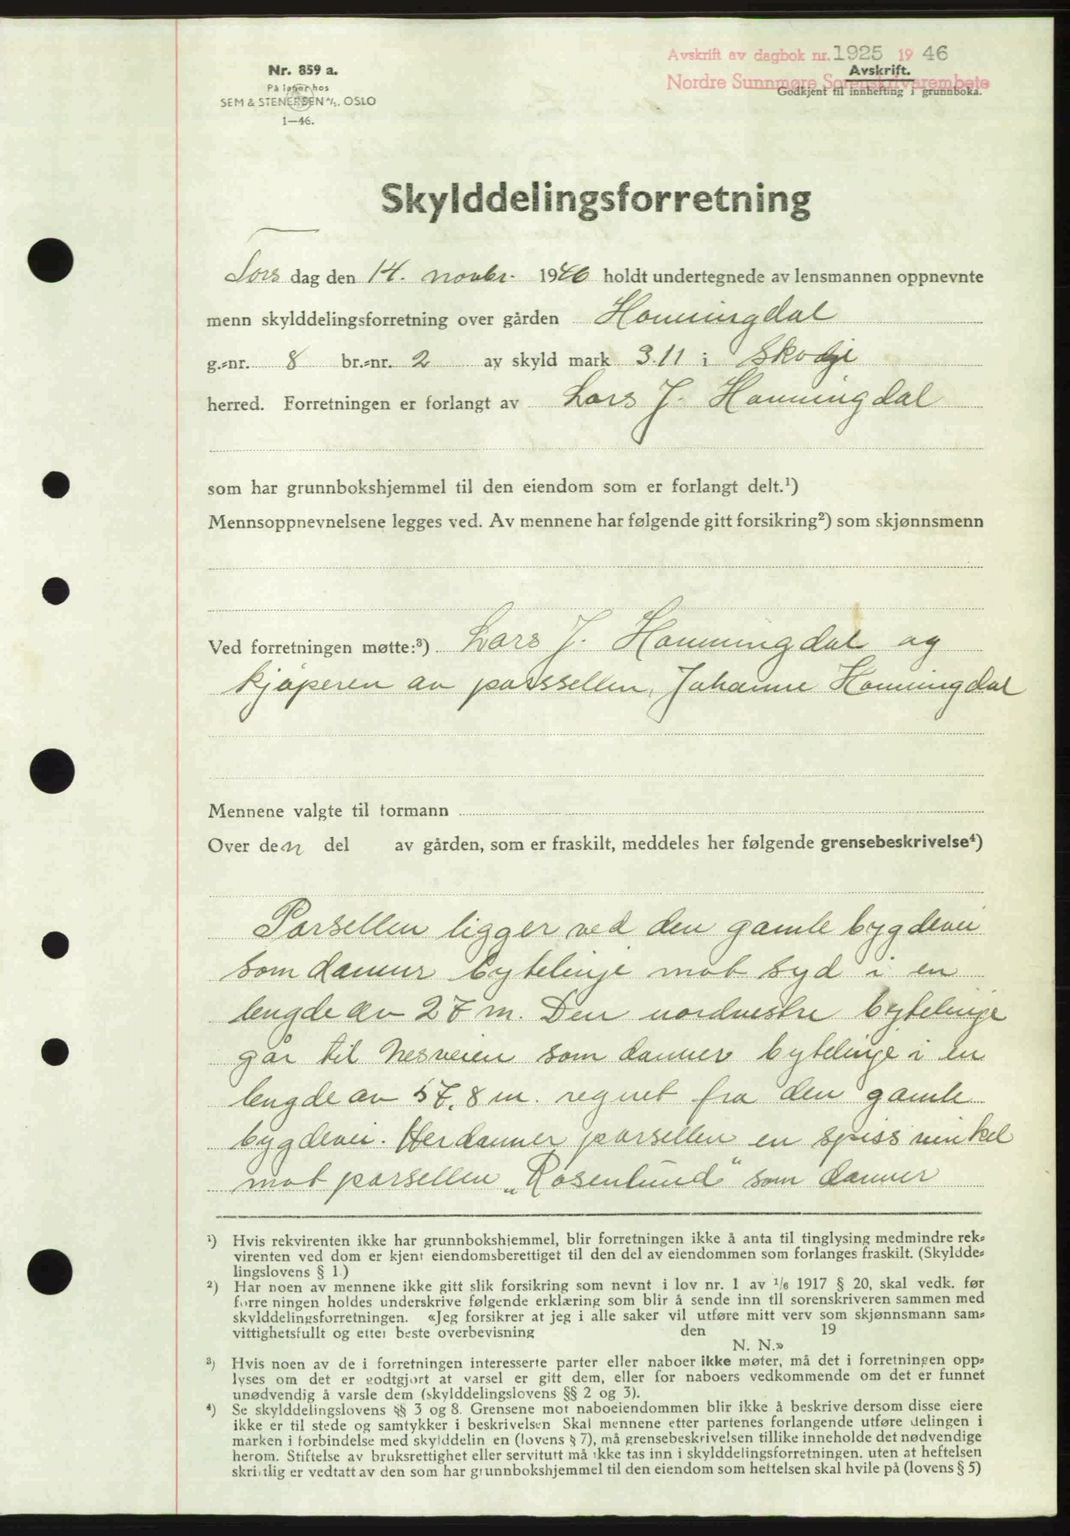 Avskrift av dagbok nr. 1925 1946
Nordre Sunnmøre Sorenskrivarembete
Nr. 859 a.
På lager hos
SEM & STENERSEN A/S, OSLO
1—46.
Avskrift.
Godkjent til innhefting i grunnboka.
Skylddelingsforretning
Tors dag den 14. novbr. 1946 holdt undertegnede av lensmannen oppnevnte
menn skylddelingsforretning over gården Honningdal
g.-nr. 8 br.-nr. 2 av skyld mark 3.11 i Skodje
herred. Forretningen er forlangt av Lars J. Honningdal
som har grunnbokshjemmel til den eiendom som er forlangt delt.¹)
Mennsoppnevnelsene legges ved. Av mennene har følgende gitt forsikring²) som skjønnsmenn
Ved forretningen møtte:³) Lars J. Honningdal og
kjøperen av parssellen, Johanne Honningdal
Mennene valgte til formann
Over den del av gården, som er fraskilt, meddeles her følgende grensebeskrivelse⁴)
Parsellen ligger ved den gamle bygdevei
som danner bytelinje mot syd i en
lengde av 27 m. Den nordvestre bytelinje
går til Nesveien som danner bytelinje i en
lengde av 57,8 m. regnet fra den gamle
bygdevei. Her danner parsellen en spiss vinkel
mot parsellen „Rosenlund" som danner
¹) Hvis rekvirenten ikke har grunnbokshjemmel, blir forretningen ikke å anta til tinglysing medmindre rek-
virenten ved dom er kjent eiendomsberettiget til den del av eiendommen som forlanges fraskilt. (Skyldde-
lingslovens § 1.)
²) Har noen av mennene ikke gitt slik forsikring som nevnt i lov nr. 1 av 1/6 1917 § 20, skal vedk. før
forretningen holdes underskrive følgende erklæring som blir å sende inn til sorenskriveren sammen med
skylddelingsforretningen. «Jeg forsikrer at jeg i alle saker vil utføre mitt verv som skjønnsmann sam-
vittighetsfullt og etter beste overbevisning den 19
N. N.»
³) Hvis noen av de i forretningen interesserte parter eller naboer ikke møter, må det i forretningen opp-
lyses om det er godtgjort at varsel er gitt dem, eller for naboers vedkommende om det er funnet
unødvendig å varsle dem (skylddelingslovens §§ 2 og 3).
⁴) Se skylddelingslovens §§ 3 og 8. Grensene mot naboeiendommen blir ikke å beskrive dersom disse eiere
ikke er til stede og samtykker i beskrivelsen Skal mennene etter partenes forlangende utføre delingen i
marken i forbindelse med skylddelingen (lovens § 7), må grensebeskrivelsen tillike inneholde det nødvendige
herom. Stiftelse av bruksrettighet eller servitutt må ikke tas inn i skylddelingsforretningen. uten at heftelsen
skriftlig er vedtatt av den som har grunnbokshjemmel til den eiendom som heftelsen skal hvile på (lovens § 5)